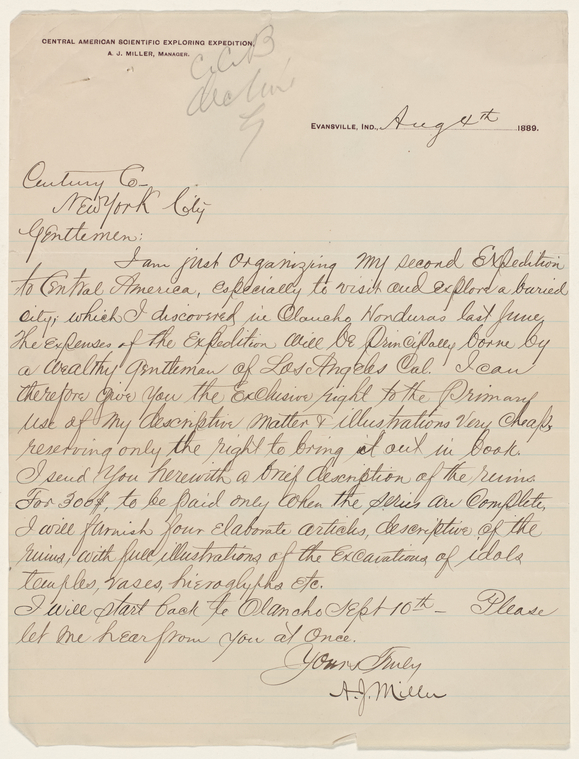 CENTRAL AMERICAN SCIENTIFIC EXPLORING EXPEDITION,
A. J. MILLER, MANAGER.
EVANSVILLE, IND., Aug 4th 1889.
Century Co
New York City
Gentlemen:
I am just organizing my second Expedition
to Central America, especially to visit and explore a buried
city; which I discovered in Olancho Honduras last June,
the Expenses of the Expedition will be principally borne by
a wealthy gentleman of Los Angeles Cal. I can
therefore give you the Exclusive right to the Primary
use of my descriptive matter & illustrations very cheap,
reserving only the right to bring it out in book.
I send you herewith a brief description of the ruins.
For 300$, to be paid only when the series are Complete,
I will furnish four Elaborate articles, descriptive of the
ruins, with full illustrations of the Excavations of idols
temples, vases, hieroglyphs etc.
I will start back to Olancho Sept 10th — Please
let me hear from you at Once.
Yours Truly
A. J. Miller